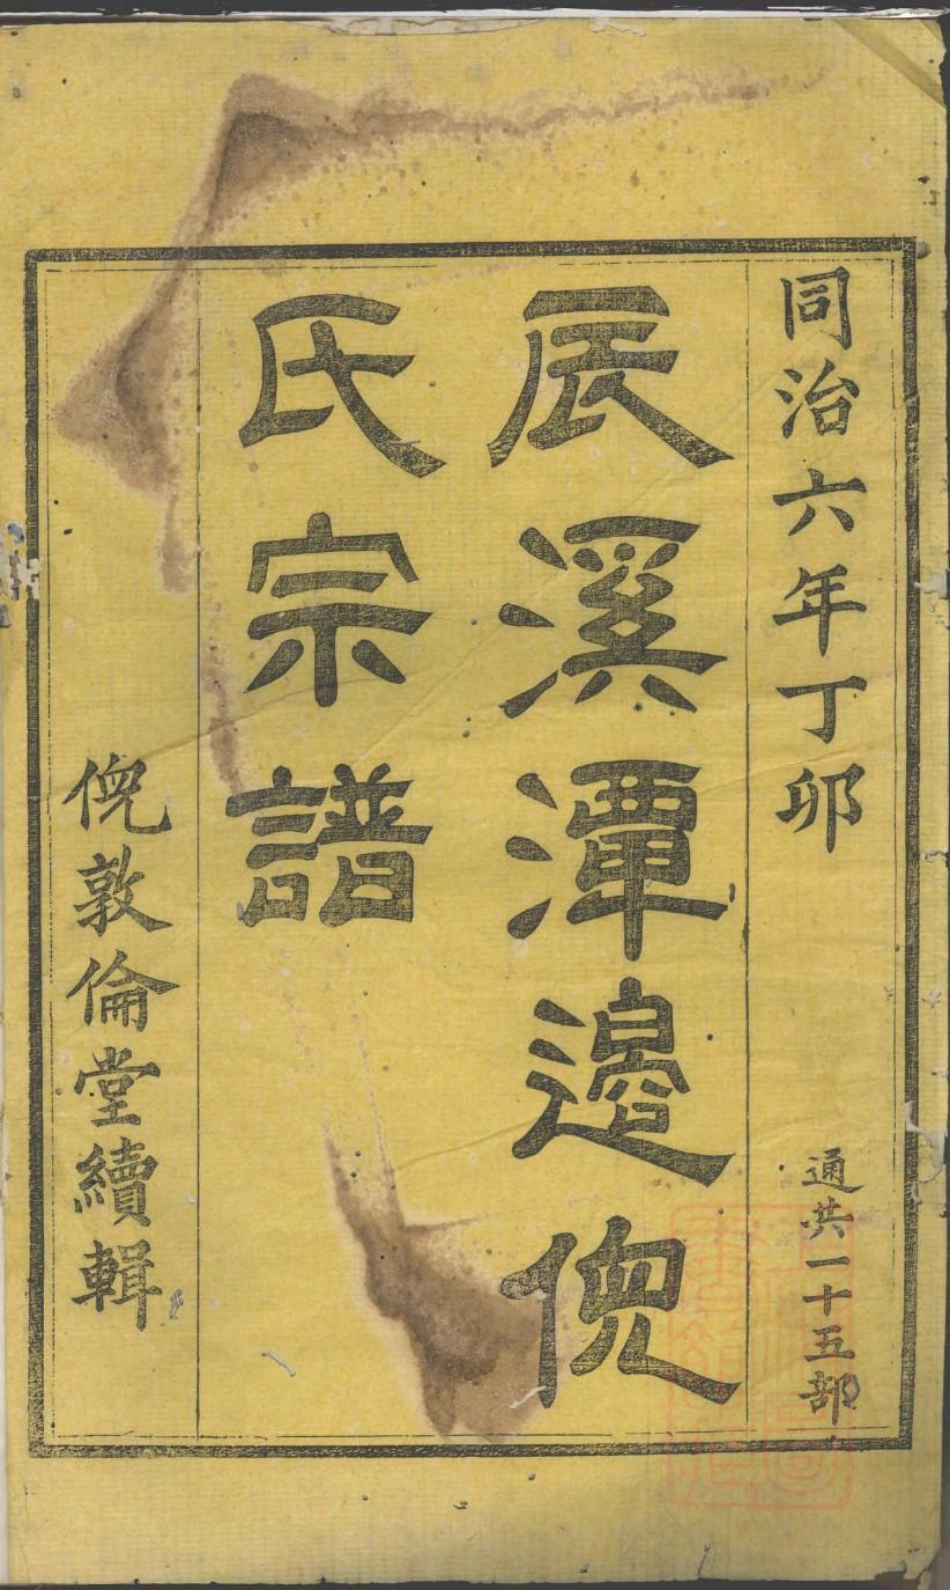 同治六年丁卯
通共一十五部
辰溪潭邊倪
氏宗譜
倪敦倫堂續輯